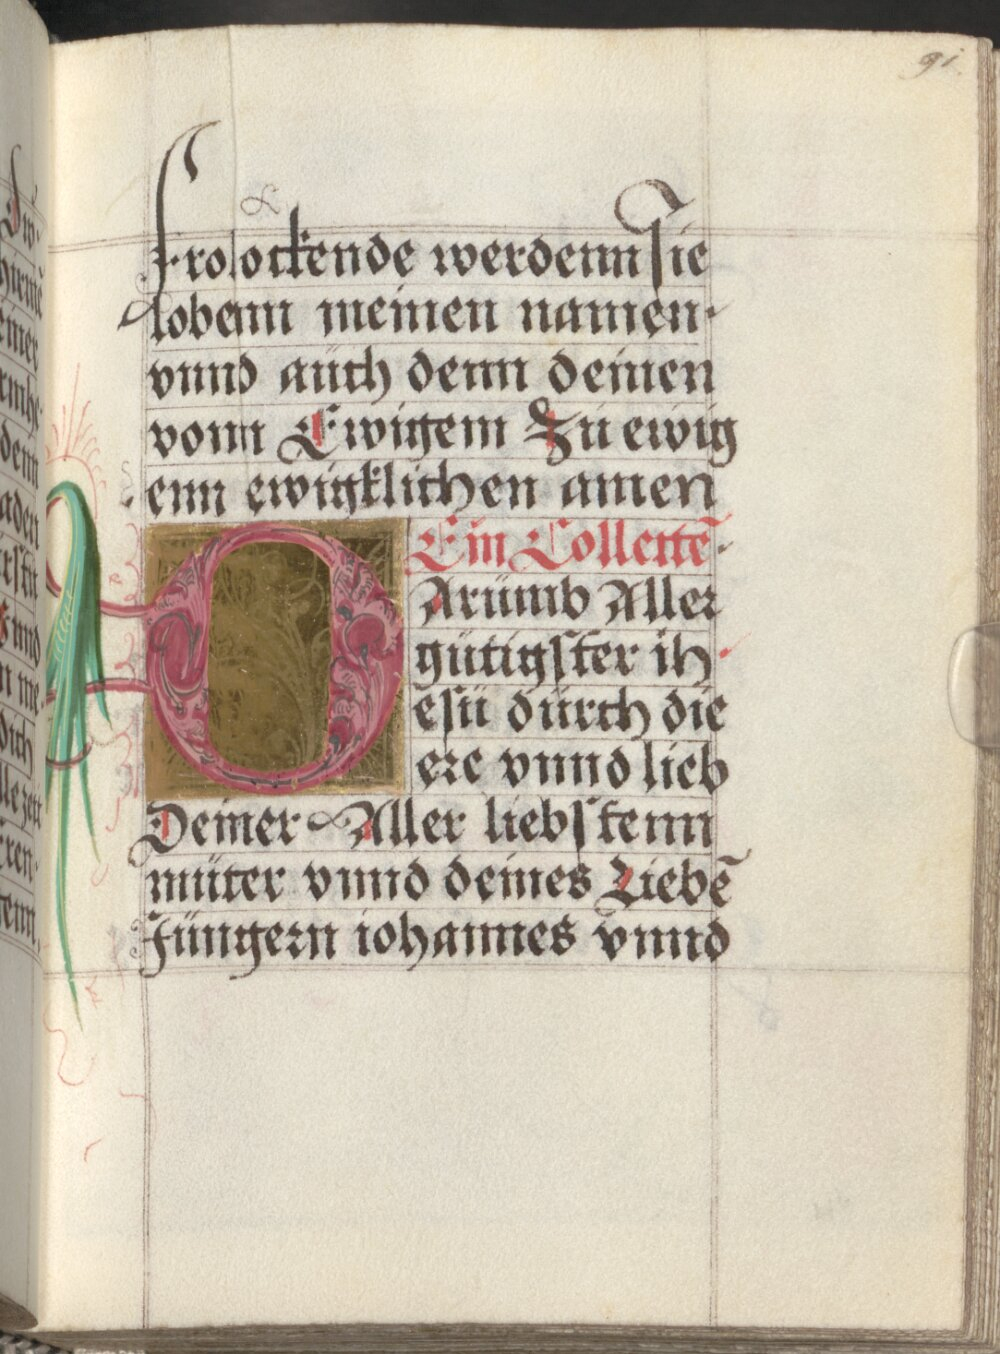 91
Frolockende werdenn Sie
lobenn meinen namen·
vnnd aüch denn deinen
vonn Ewigem Zü ewig
enn ewigklichen amen
Ein Collectē·
DArümb Aller
gütigster ih·
esü dürch die
ere vnnd lieb
Deiner Aller liebstenn
müter vnnd deines Liebē
Jüngern iohannes vnnd